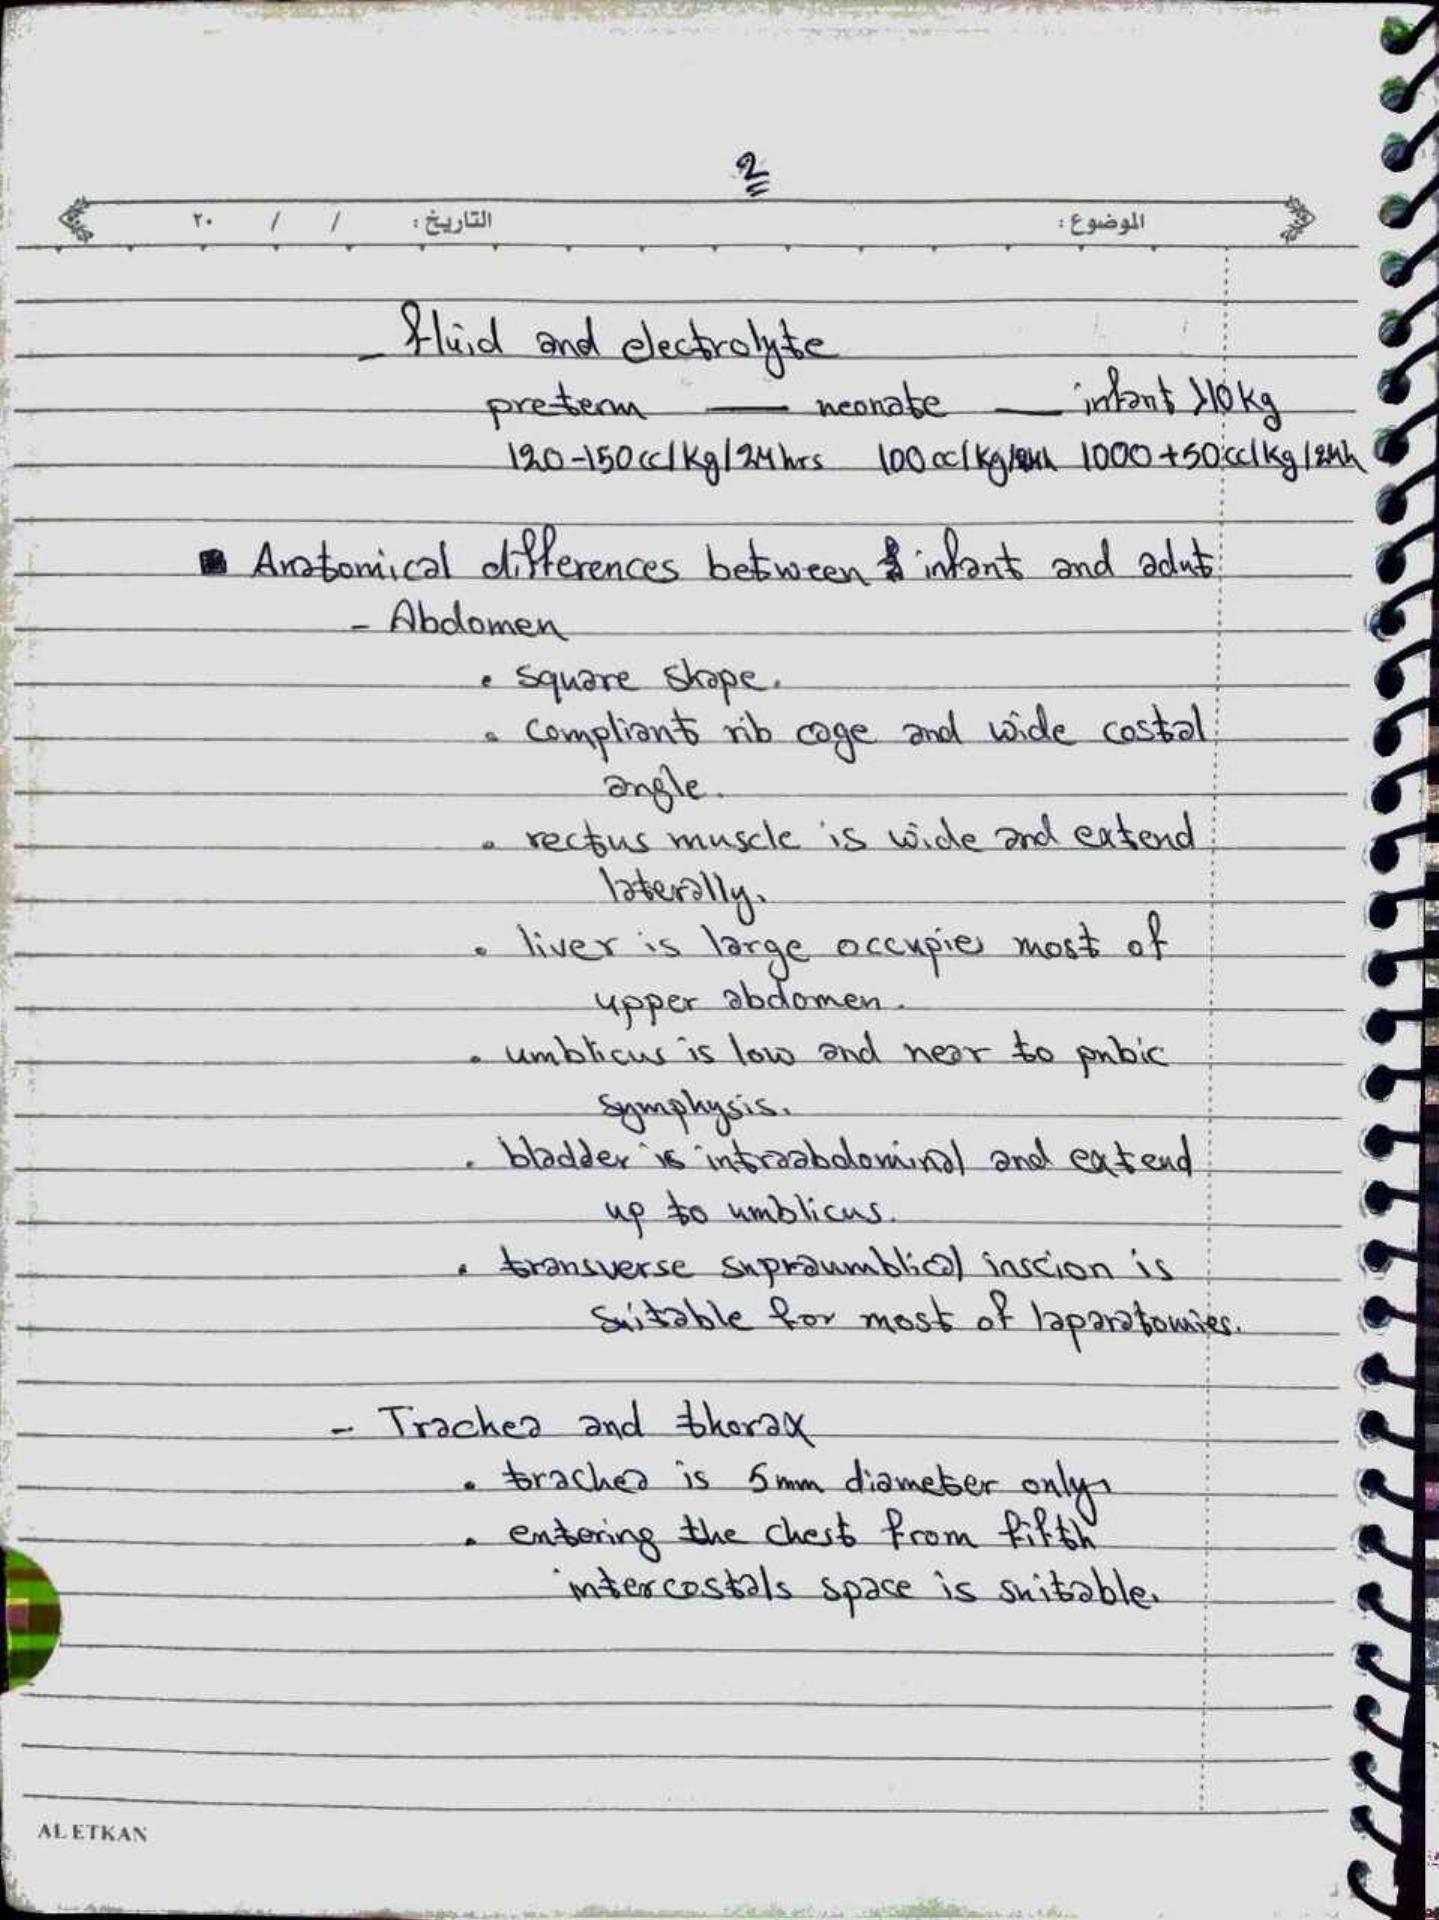 2
الموضوع: التاريخ: / / ٢٠
- fluid and electrolyte
preterm — neonate — infant >10kg
120-150cc/kg/24hrs 100cc/kg/24h 1000+50cc/kg/24h
■ Anatomical differences between infant and adut
- Abdomen
• square shape.
• compliant rib cage and wide costal
angle.
• rectus muscle is wide and extend
laterally.
• liver is large occupies most of
upper abdomen.
• umblicus is low and near to pubic
symphysis.
• bladder is intraabdominal and extend
up to umblicus.
• transverse supraumblical inscion is
suitable for most of laparatomies.
- Trachea and thorax
• trachea is 5mm diameter only.
• entering the chest from fifth
intercostals space is suitable.
AL ETKAN